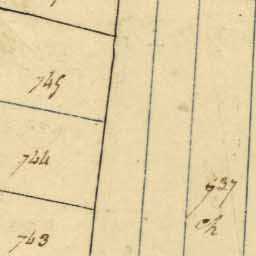 745
744
737
ch
743